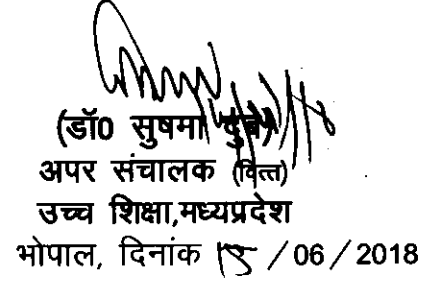 (डॉ0 सुषमा दुबे)
अपर संचालक (वित्त)
उच्च शिक्षा,मध्यप्रदेश
भोपाल, दिनांक 15 / 06 / 2018